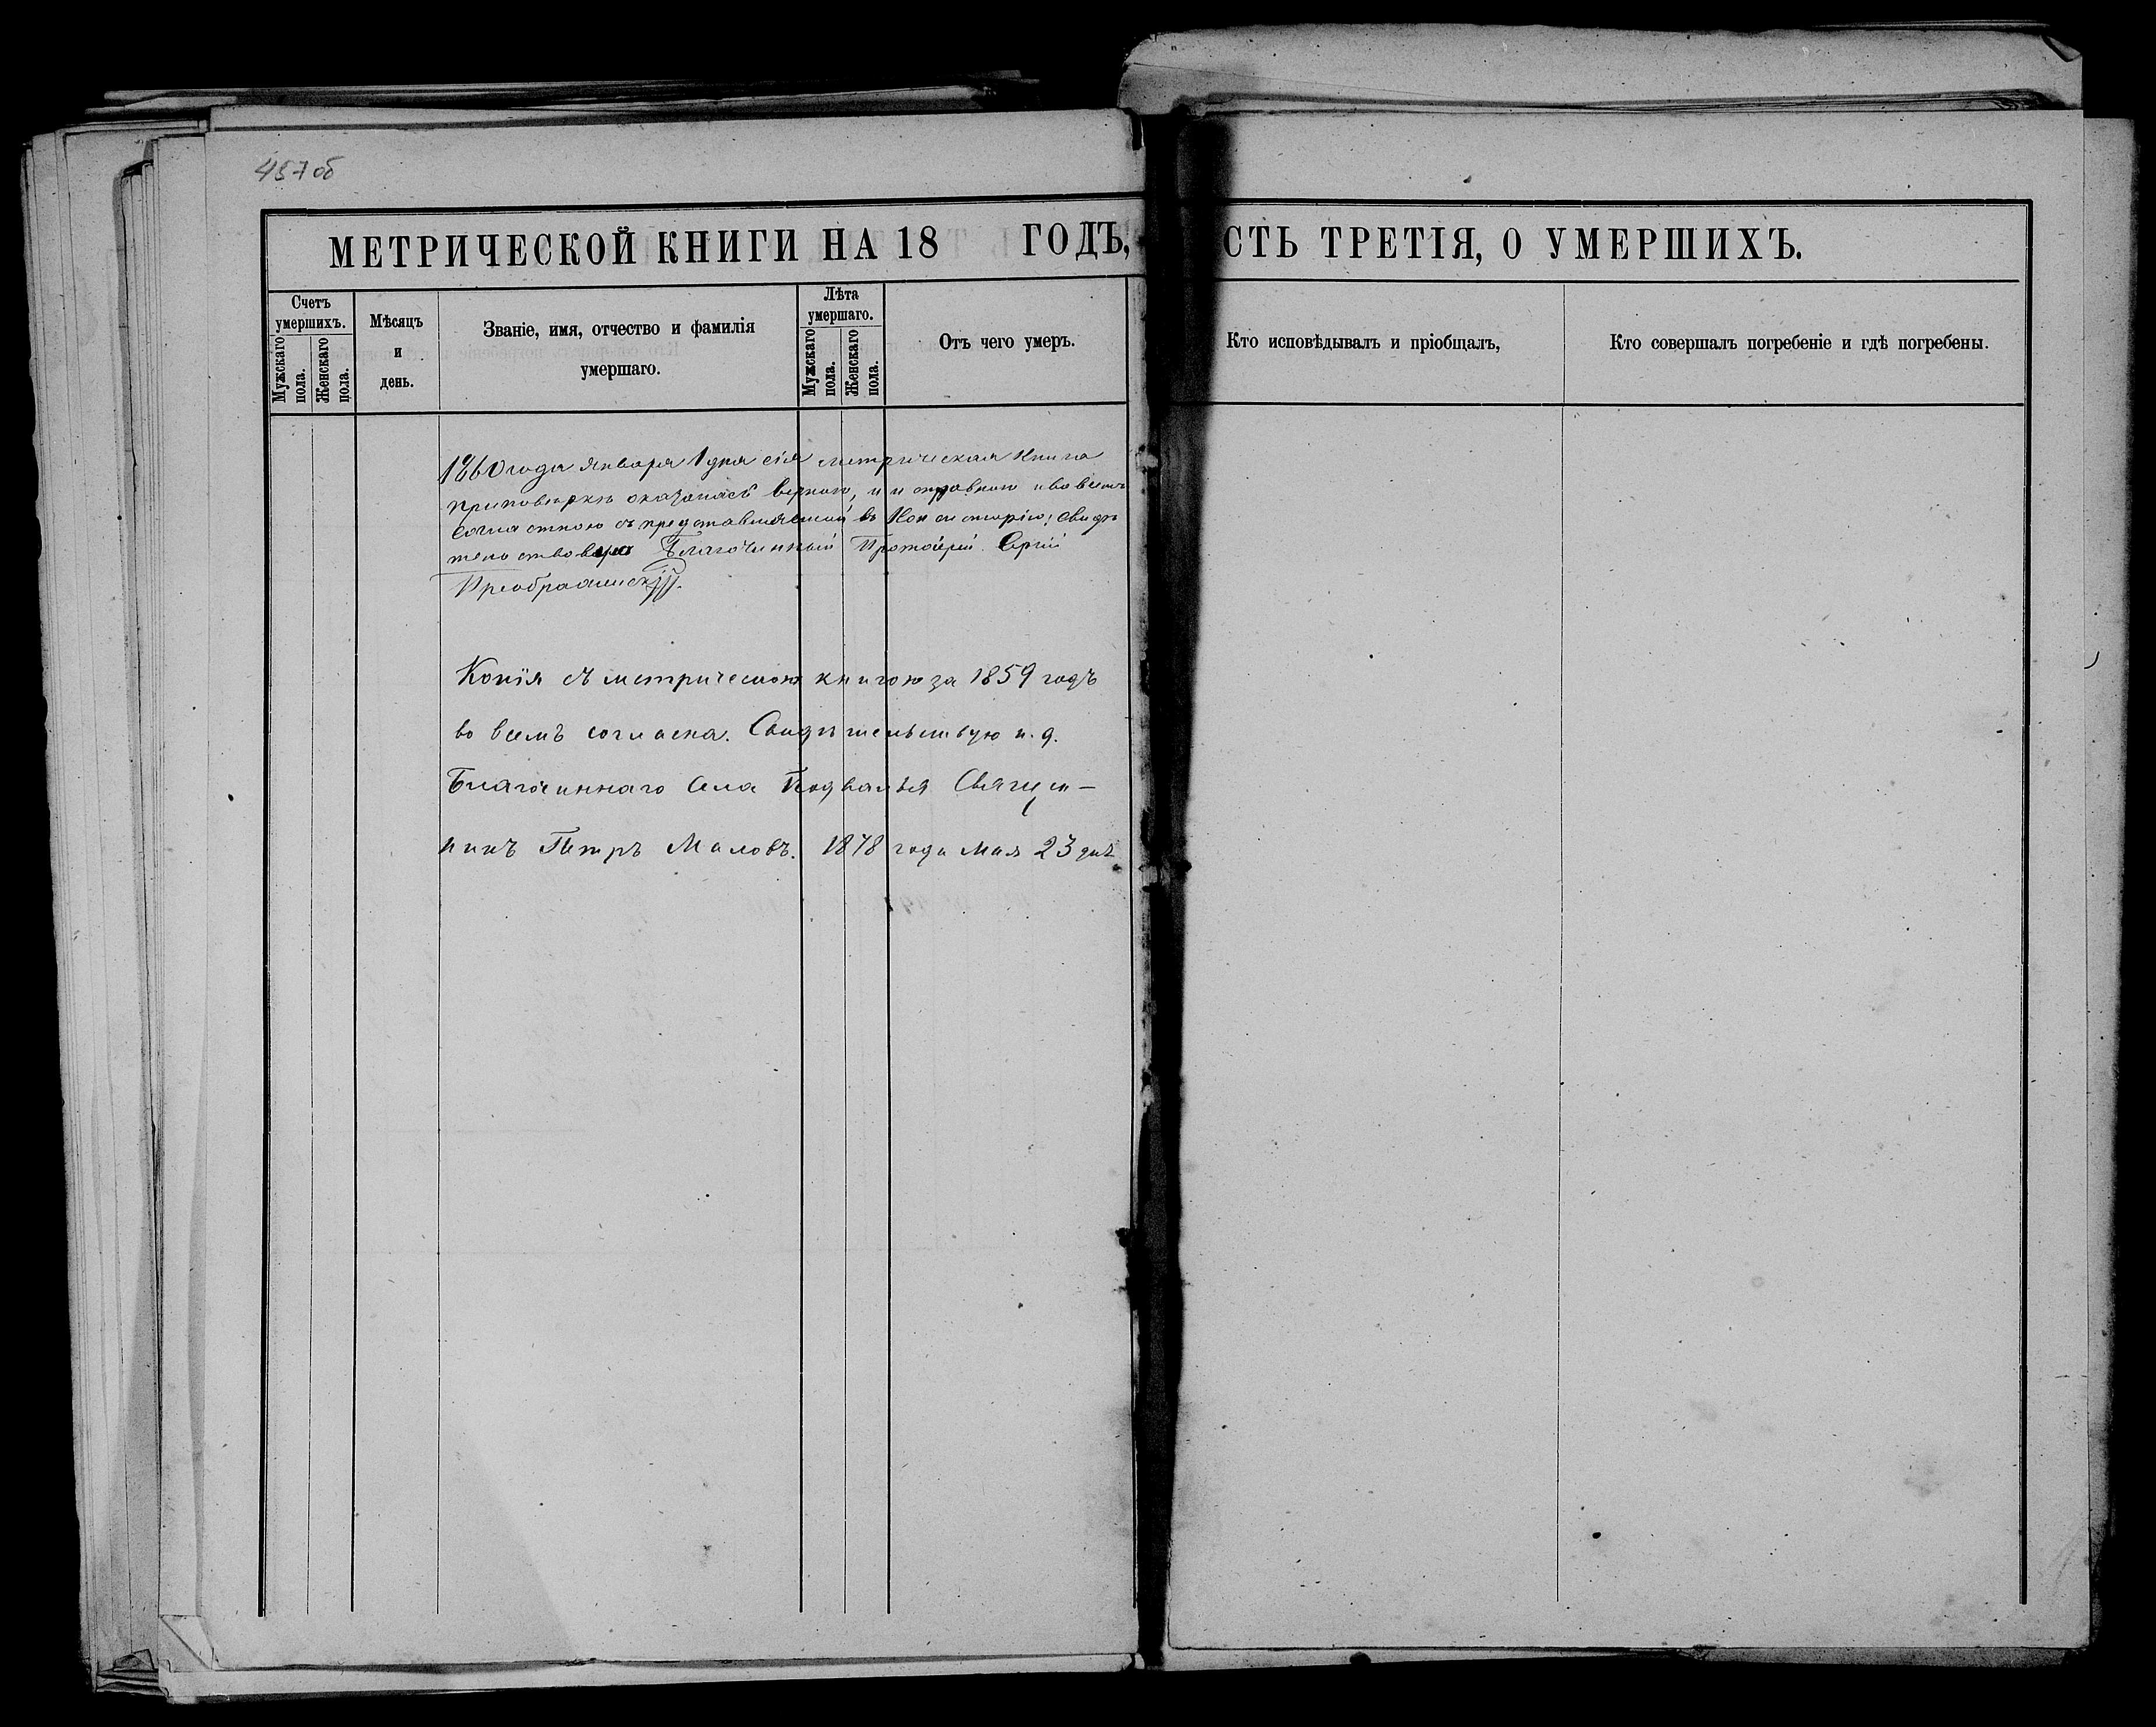 457об
МЕТРИЧЕСКОЙ КНИГИ НА 18 ГОДЪ,
СТЬ ТРЕТІЯ, О УМЕРШИХЪ.
Счетъ умершихъ.
Мужскаго пола.
Женскаго пола.
Мѣсяцъ и день.
Званіе, имя, отчество и фамилія
умершаго.
Лѣта умершаго.
Мужскаго пола.
Женскаго пола.
Отъ чего умеръ.
Кто исповѣдывалъ и пріобщалъ,
Кто совершалъ погребеніе и гдѣ погребены.
1860 года Января 1 дня сія метрическая книга
приповѣркѣ оказалась верною, и и справною ивовсемъ
согластною съ представляемой въ Консисторію; свидѣ
Благочинный Протоіерей Сергій
Преображенскій.
Копія съ метрическою книгою за 1859 годъ
во всемъ согласна. Свидѣтельствую и. д.
Благочиннаго Села Подвалья Священ-
никъ Петръ Маловъ. 1878 года Мая 23 дня